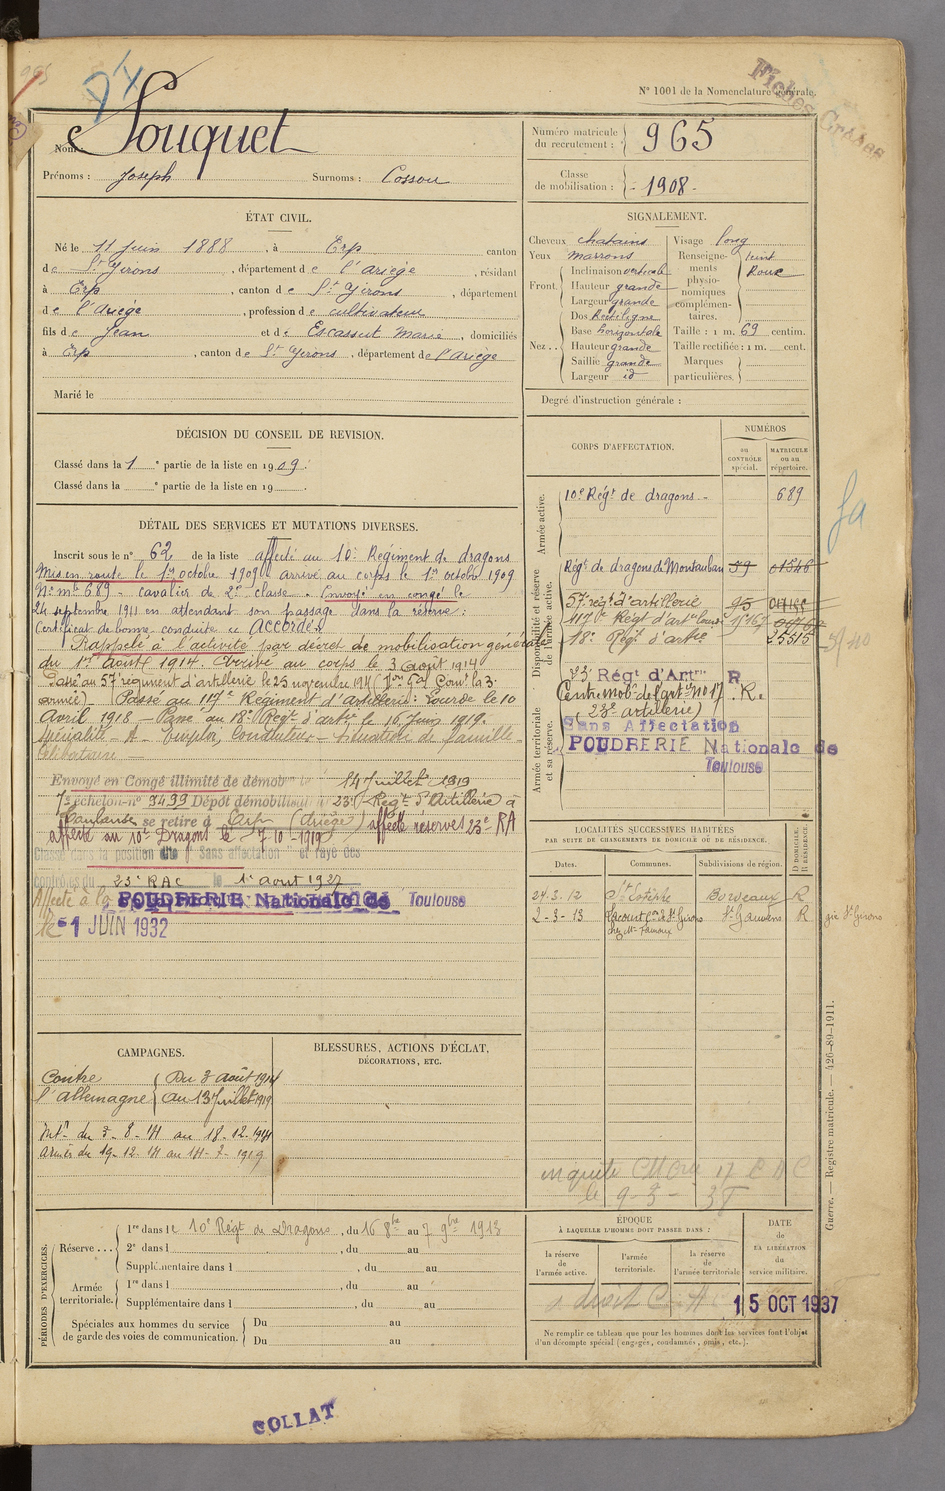 N° 1001 de la Nomenclature générale.
Fiches Croses
Nom : Souquet
Prénoms : Joseph Surnoms : Cossou
Numéro matricule du recrutement : 965
Classe de mobilisation : 1908
ÉTAT CIVIL.
Né le 11 Juin 1888, à Erp canton
de St Girons, département de l'Ariège, résidant
à Erp, canton de St Girons, département
de l'Ariège, profession de cultivateur
fils de Jean et de Escassut Marie, domiciliés
à Erp, canton de St Girons, département de l'Ariège
Marié le
SIGNALEMENT.
Cheveux chatains Visage long
Yeux marrons Renseignements physionomiques complémentaires. teint Roux
Front. Inclinaison verticale
Hauteur grande
Largeur grande
Nez.. Dos Rectiligne
Base horizontale Taille : 1 m. 69 centim.
Hauteur grande Taille rectifiée : 1 m. cent.
Saillie grande Marques
Largeur id particulières.
Degré d'instruction générale :
DÉCISION DU CONSEIL DE REVISION.
Classé dans la 1e partie de la liste en 1909.
Classé dans la e partie de la liste en 19
DÉTAIL DES SERVICES ET MUTATIONS DIVERSES.
Inscrit sous le n° 62 de la liste affecté au 10e Régiment de dragons
Mis en route le 1er octobre 1909 arrivé au corps le 1er octobre 1909
N° mle 689 - cavalier de 2e classe. Envoyé en congé le
24 septembre 1911 en attendant son passage dans la réserve :
Certificat de bonne conduite "Accordé"
Rappelé à l'activité par décret de mobilisation générale
du 1er août 1914. Arrivé au corps le 3 août 1914
Passé au 57e régiment d'artillerie le 23 novembre 191
armée) Passé au 117e Régiment d'Artillerie Lourde le 10
Avril 1918 - Passé au 18e Régt d'artie le 16 Juin 1919.
Spécialité - A - Emploi, Conducteur - Situation de famille -
Célibataire
Envoyé en Congé illimité de démob 14 Juillet 1919
7e échelon n° 3499 Dépôt démobilisateur 23e Régt d'Artillerie à
Toulouse se retire à Erp (Ariège) affecté réserves 23e RA
affecté au 10e Dragons le 7-10-1919
Classé dans la position dite "Sans affectation" et rayé des
contrôles du 23e RAC le 1er août 1927
Affecté à la POUDRERIE Nationale de Toulouse
le -1 JUIN 1932
CORPS D'AFFECTATION.
NUMÉROS
au CONTRÔLE spécial. MATRICULE ou au répertoire.
Armée active.
10e Régt de dragons - 689
Disponibilité et réserve de l'armée active.
Régt de dragons de Montauban 59 01548
57e régt d'artillerie 95
117e Régt d'artie lourde
18e Régt d'artie 25515
Armée territoriale et sa réserve.
23e Régt d'Artie R
Centre mob. d'art. n° 17. R.
(23e artillerie)
Sans Affectation
POUDRERIE Nationale de
Toulouse
LOCALITÉS SUCCESSIVES HABITÉES
PAR SUITE DE CHANGEMENTS DE DOMICILE OU DE RÉSIDENCE.
Dates. Communes. Subdivisions de région. D. DOMICILE. R. RÉSIDENCE.
24-3-12 St Estèphe Bordeaux R
2-3-13 Lacourt con de St Girons St Gaudens R
CAMPAGNES.
Contre l'Allemagne Du 3 août 1914
au 13 Juillet 1919
Intr du 3-8-14 au 18-12-1914
armées du 19-12-14 au 14-7-1919
BLESSURES, ACTIONS D'ÉCLAT,
DÉCORATIONS, ETC.
PÉRIODES D'EXERCICES.
Réserve... 1re dans le 10e Régt de Dragons, du 16 8bre au 7 9bre 1913
2e dans l , du au
Supplémentaire dans l , du au
Armée territoriale. 1re dans l , du au
Supplémentaire dans l , du au
Spéciales aux hommes du service de garde des voies de communication. Du au
Du au
ÉPOQUE
À LAQUELLE L'HOMME DOIT PASSER DANS :
la réserve de l'armée active. l'armée territoriale. la réserve de l'armée territoriale
DATE de LA LIBÉRATION du service militaire.
15 OCT 1937
Ne remplir ce tableau que pour les hommes dont les services font l'objet
d'un décompte spécial (engagés, condamnés, omis, etc.).
Guerre. — Registre matricule. — 426-89-1911.
COLLAT